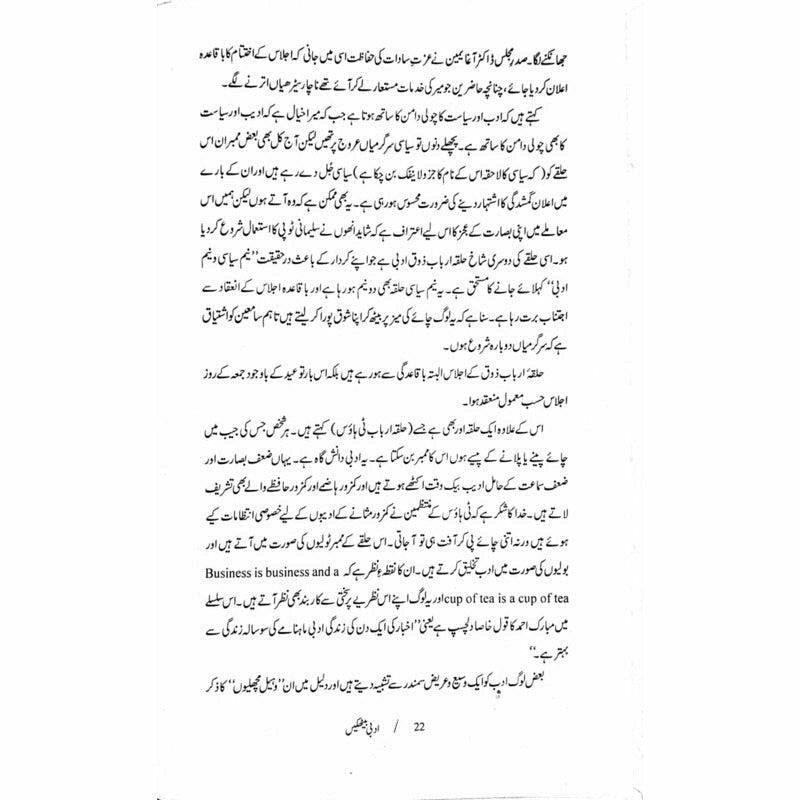 جھانکنے لگا۔ صدر مجلس ڈاکٹر آغا یمین نے عزتِ سادات کی حفاظت اسی میں جانی کہ اجلاس کے اختتام کا باقاعدہ
اعلان کر دیا جائے، چنانچہ حاضرین جو میر کی خدمات مستعار لے کر آئے تھے ناچار سیڑھیاں اترنے لگے۔
کہتے ہیں کہ ادب اور سیاست کا چولی دامن کا ساتھ ہوتا ہے جب کہ میرا خیال ہے کہ ادیب اور سیاست
کا بھی چولی دامن کا ساتھ ہے۔ پچھلے دنوں تو سیاسی سرگرمیاں عروج پر تھیں لیکن آج کل بھی بعض ممبران اس
حلقے کو (کہ سیاسی کا لاحقہ اس کے نام کا جزولاینفک بن چکا ہے) سیاسی جُل دے رہے ہیں اور ان کے بارے
میں اعلان گمشدگی کا اشتہار دینے کی ضرورت محسوس ہو رہی ہے۔ یہ بھی ممکن ہے کہ وہ آتے ہوں لیکن ہمیں اس
معاملے میں اپنی بصارت کے عجز کا اس لیے اعتراف ہے کہ شاید انھوں نے سلیمانی ٹوپی کا استعمال شروع کر دیا
ہو۔ اسی حلقے کی دوسری شاخ حلقہ ارباب ذوق ادبی ہے جو اپنے کردار کے باعث درحقیقت ’’نیم سیاسی و نیم
ادبی‘‘ کہلائے جانے کا مستحق ہے۔ یہ نیم سیاسی حلقہ بھی دو نیم ہو رہا ہے اور باقاعدہ اجلاس کے انعقاد سے
اجتناب برت رہا ہے۔ سنا ہے کہ یہ لوگ چائے کی میز پر بیٹھ کر اپنا شوق پورا کر لیتے ہیں تاہم سامعین کو اشتیاق
ہے کہ سرگرمیاں دوبارہ شروع ہوں۔
حلقۂ ارباب ذوق کے اجلاس البتہ باقاعدگی سے ہو رہے ہیں بلکہ اس بار تو عید کے باوجود جمعہ کے روز
اجلاس حسب معمول منعقد ہوا۔
اس کے علاوہ ایک حلقہ اور بھی ہے جسے (حلقہ ارباب ٹی ہاؤس) کہتے ہیں۔ ہر شخص جس کی جیب میں
چائے پینے یا پلانے کے پیسے ہوں اس کا ممبر بن سکتا ہے۔ یہ ادبی دانش گاہ ہے۔ یہاں ضعف بصارت اور
ضعف سماعت کے حامل ادیب بیک وقت اکٹھے ہوتے ہیں اور کمزور ہاضمے اور کمزور حافظے والے بھی تشریف
لاتے ہیں۔ خدا کا شکر ہے کہ ٹی ہاؤس کے منتظمین نے کمزور مثانے کے ادیبوں کے لیے خصوصی انتظامات کیے
ہوئے ہیں ورنہ اتنی چائے پی کر آفت ہی تو آ جاتی۔ اس حلقے کے ممبر ٹولیوں کی صورت میں آتے ہیں اور
بولیوں کی صورت میں ادب تخلیق کرتے ہیں۔ ان کا نقطۂ نظر ہے کہ Business is business and a
cup of tea is a cup of tea اور یہ لوگ اپنے اس نظریے پر سختی سے کاربند بھی نظر آتے ہیں۔ اس سلسلے
میں مبارک احمد کا قول خاصا دلچسپ ہے یعنی ’’اخبار کی ایک دن کی زندگی ادبی ماہنامے کی سو سالہ زندگی سے
بہتر ہے۔‘‘
بعض لوگ ادب کو ایک وسیع و عریض سمندر سے تشبیہ دیتے ہیں اور دلیل میں ان ’’وہیل مچھلیوں‘‘ کا ذکر
22 / ادبی بیٹھکیں